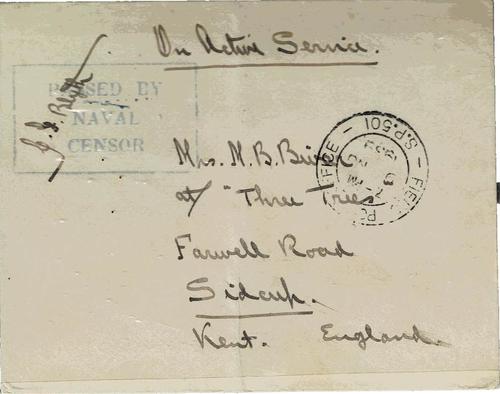 On Active Service.
PASSED BY
NAVAL
CENSOR
FIELD POST OFFICE
S.P.501
Mrs. M. B.
at "Three Trees"
Farwell Road
Sidcup.
Kent. England.